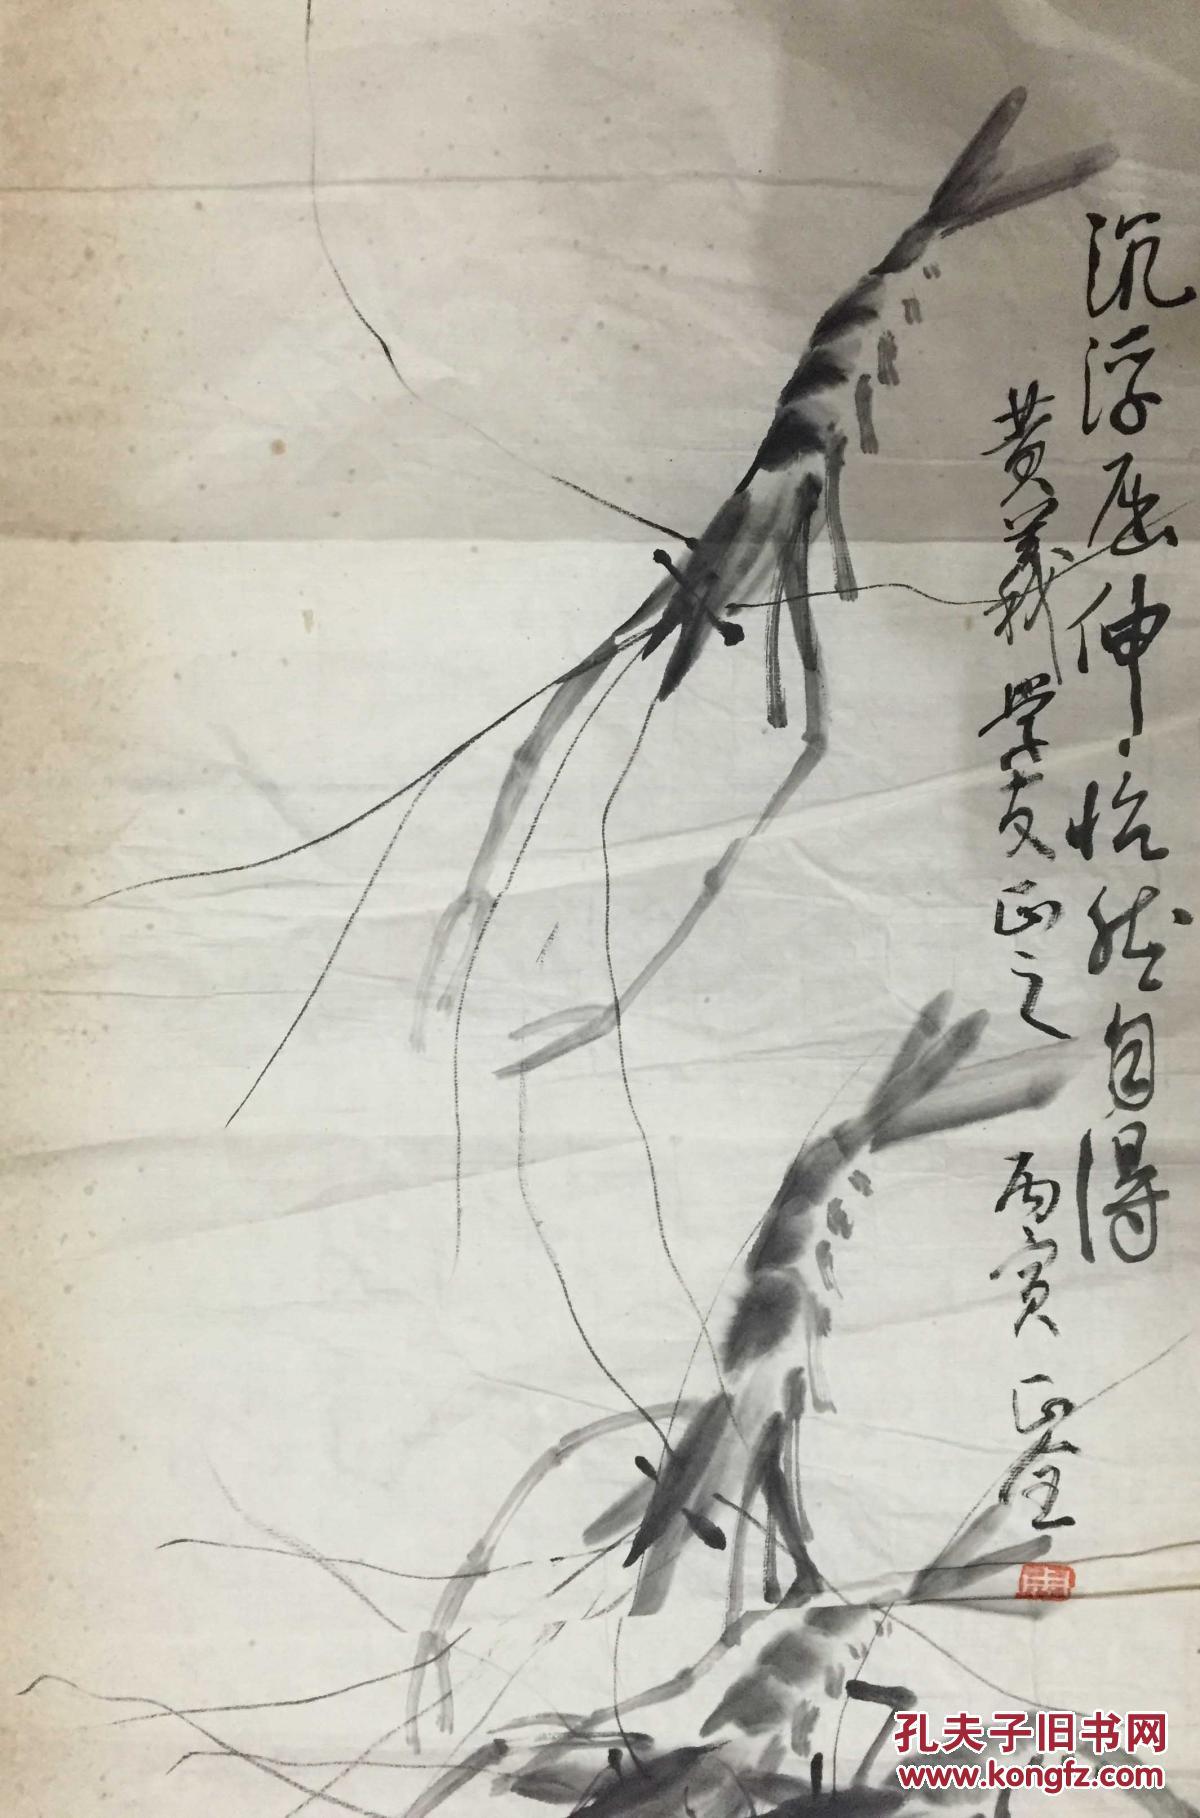 沉浮屈伸怡然自得
黄义我学友正之
丙寅 正全
孔夫子旧书网
www.kongfz.com